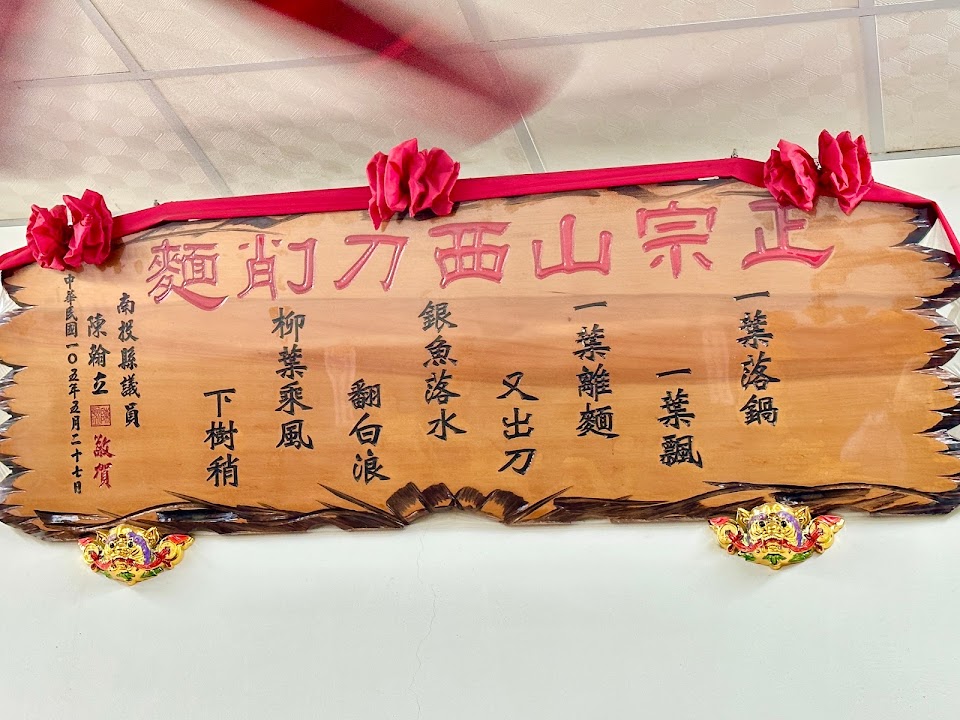 正宗山西刀削麵
一葉落鍋
一葉飄
一葉離麵
又出刀
銀魚落水
翻白浪
柳葉乘風
下樹稍
南投縣議員
陳翰立 敬賀
中華民國一〇五年五月二十七日